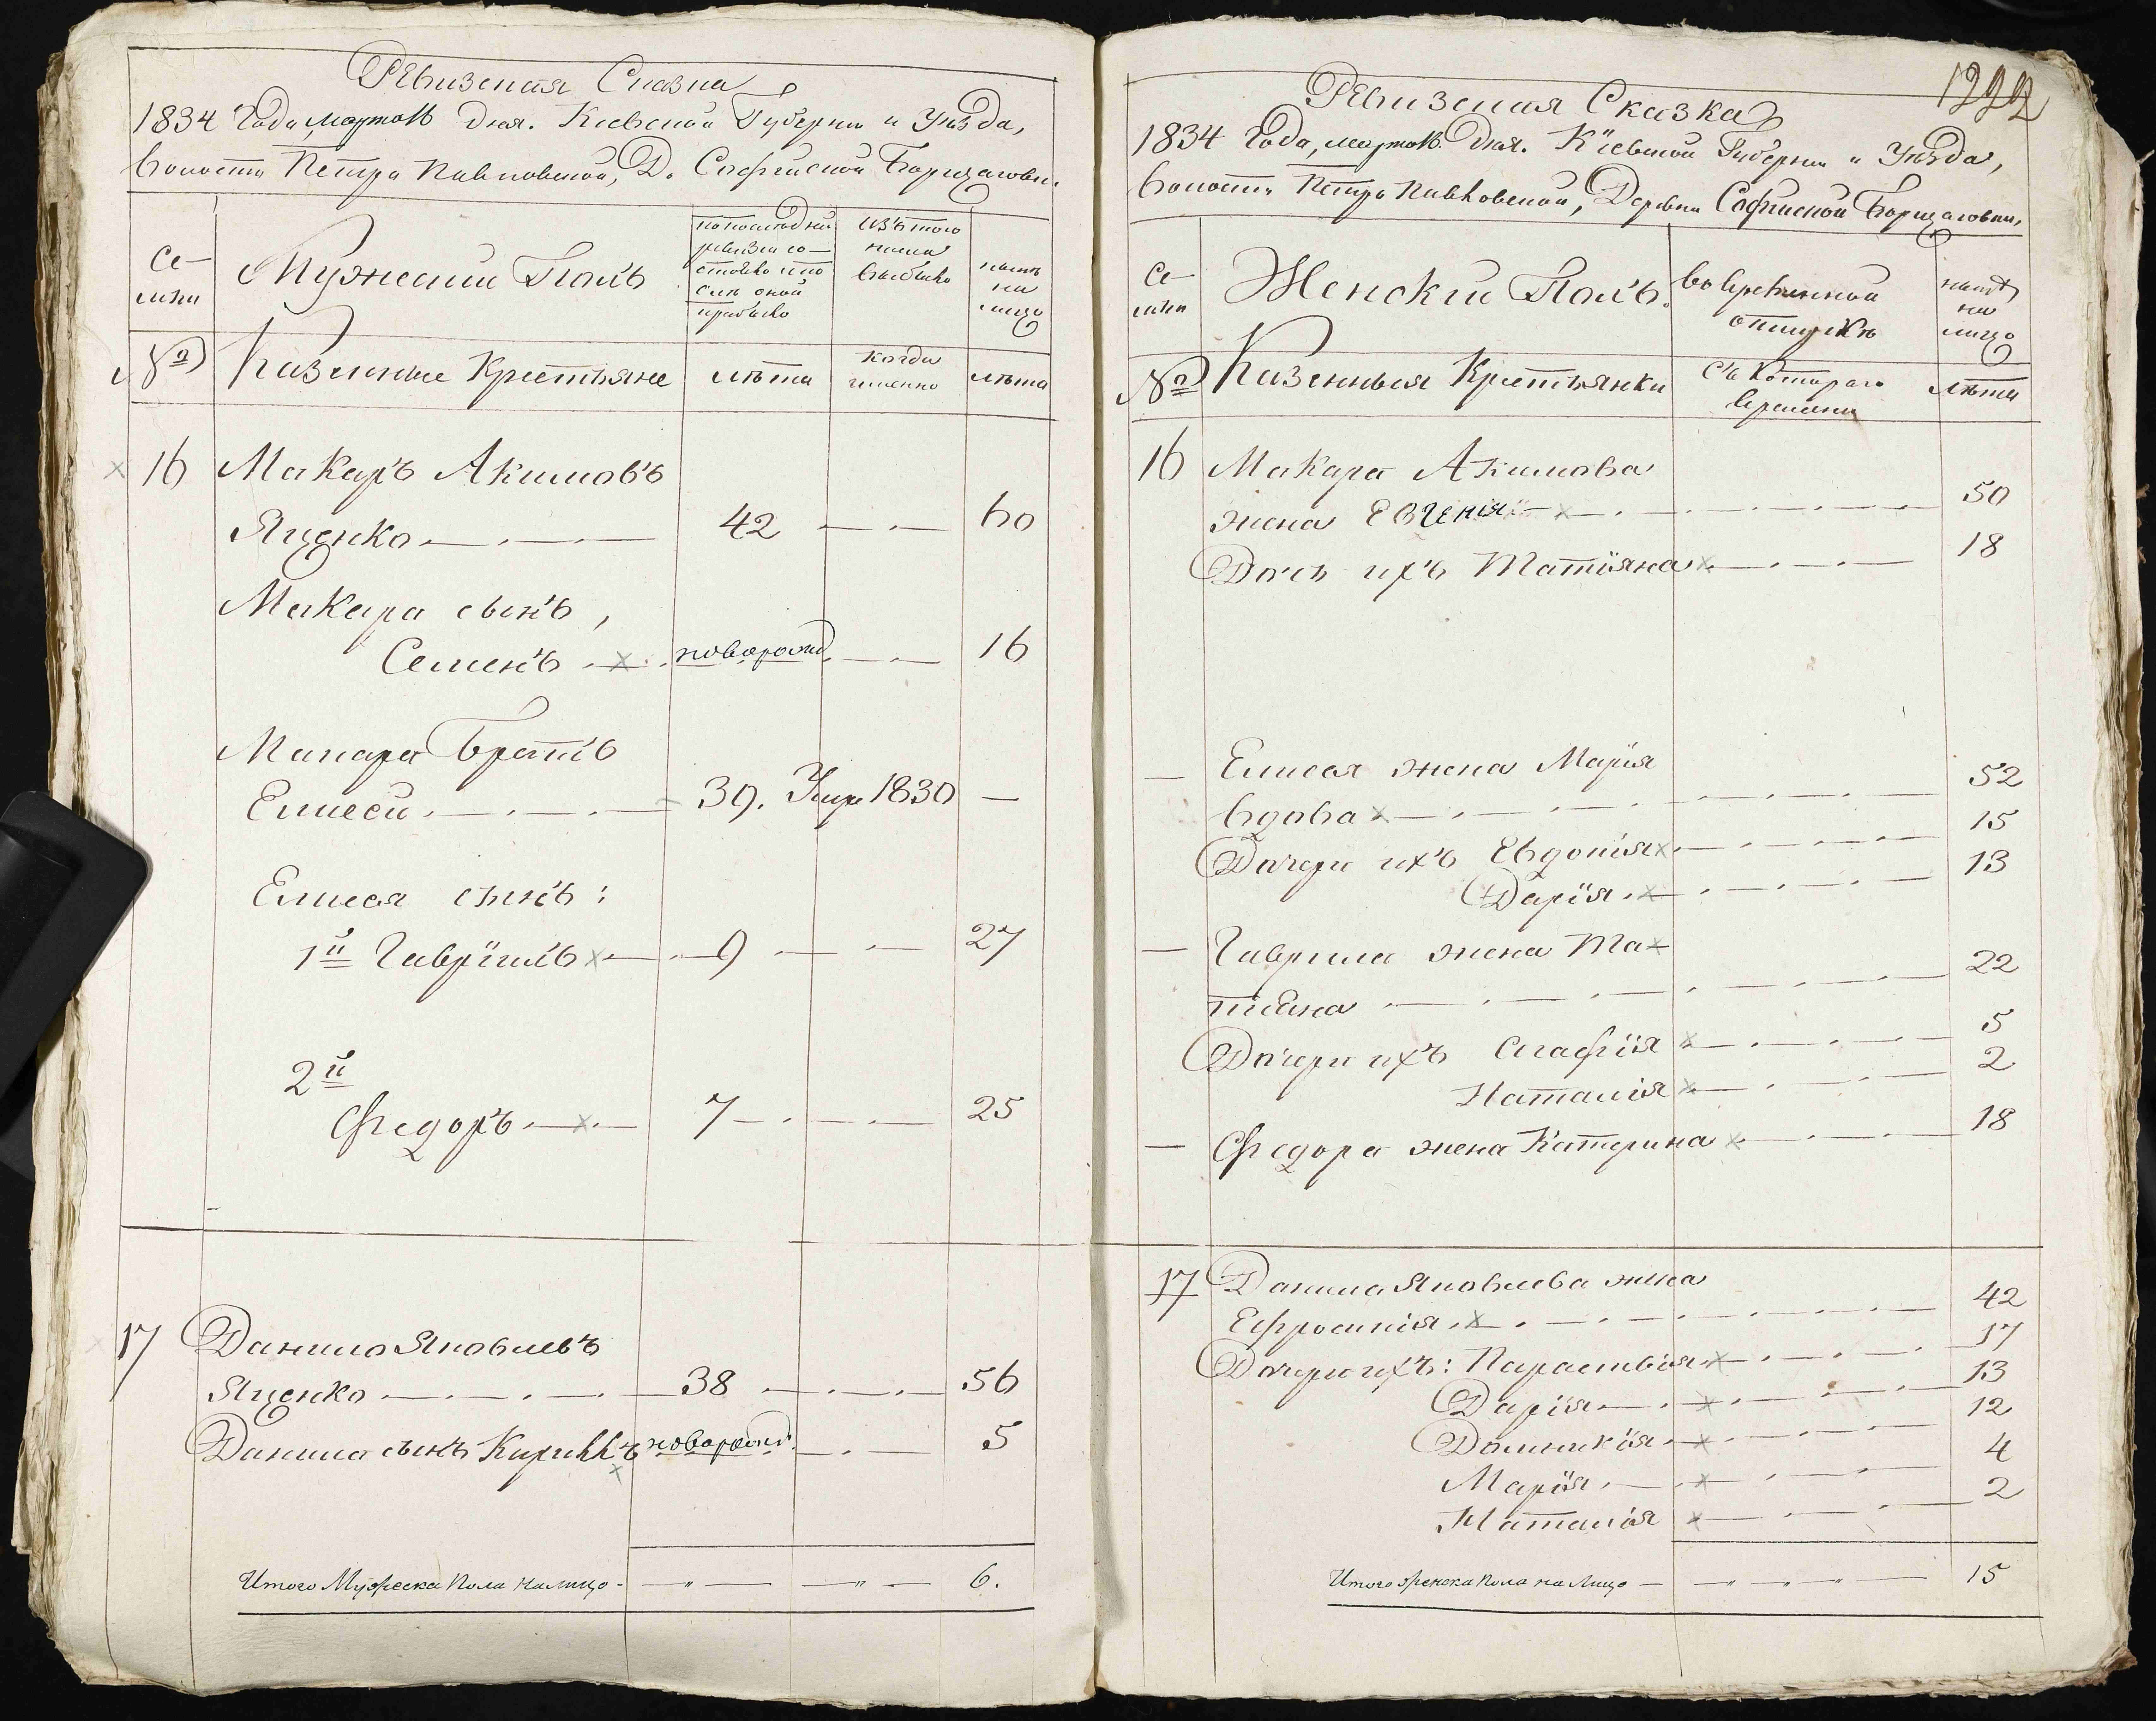 Ревизская Сказка
1834 Года марта 16 дня. Киевской Губернии и Уезда,
волости Петро Павловской, Д. Софийской Борщаговки.
Се-
мьи
Мужеский Полъ
по последней
ревизии со-
стояло и по
сле оной
прибыло
изъ того
числа
выбыло
ныне
на
лицо
№
Казенные Крестьяне
лѣта
когда
именно
лѣта
16 Макаръ Акимовъ
Яценко 42 60
Макара сынъ,
Семенъ новорожд. 16
Макара Братъ
Елисей 39. Умре 1830 —
Елисея сынъ:
1й Гаврiилъ 9 27
2й
Федоръ 7 25
17 Данило Яковлевъ
Яценко 38 56
Данила сынъ Кириллъ новорожд. 5
Итого Мужеска пола налицо 6.
1222
Ревизская Сказка
1834 Года, марта 16 Дня. Кiевской Губернии и Уѣзда,
Волости Петро Павловской, Деревни Софийской Борщаговки,
Се-
мьи
Женский Полъ.
Во временной
отлучкѣ
нынѣ
на
лицо
№
Казенныя Крестьянки
Съ Котораго
времени
лѣта
16 Макара Акимова
жена Евгенiя 50
Дочь ихъ Татiяна 18
— Елисея жена Марiя
вдова 52
Дочери ихъ Евдокiя 15
Дарiя 13
— Гаврила жена Та
тiяна 22
Дочери ихъ Агафiя 5
Наталiя 2
— Федора жена Катерина 18
17 Данила Яковлева жена
Ефросинiя 42
Дочери ихъ: Параскевiя 17
Дарiя 13
Домникiя 12
Марiя 4
Наталiя 2
Итого женска пола на лицо 15